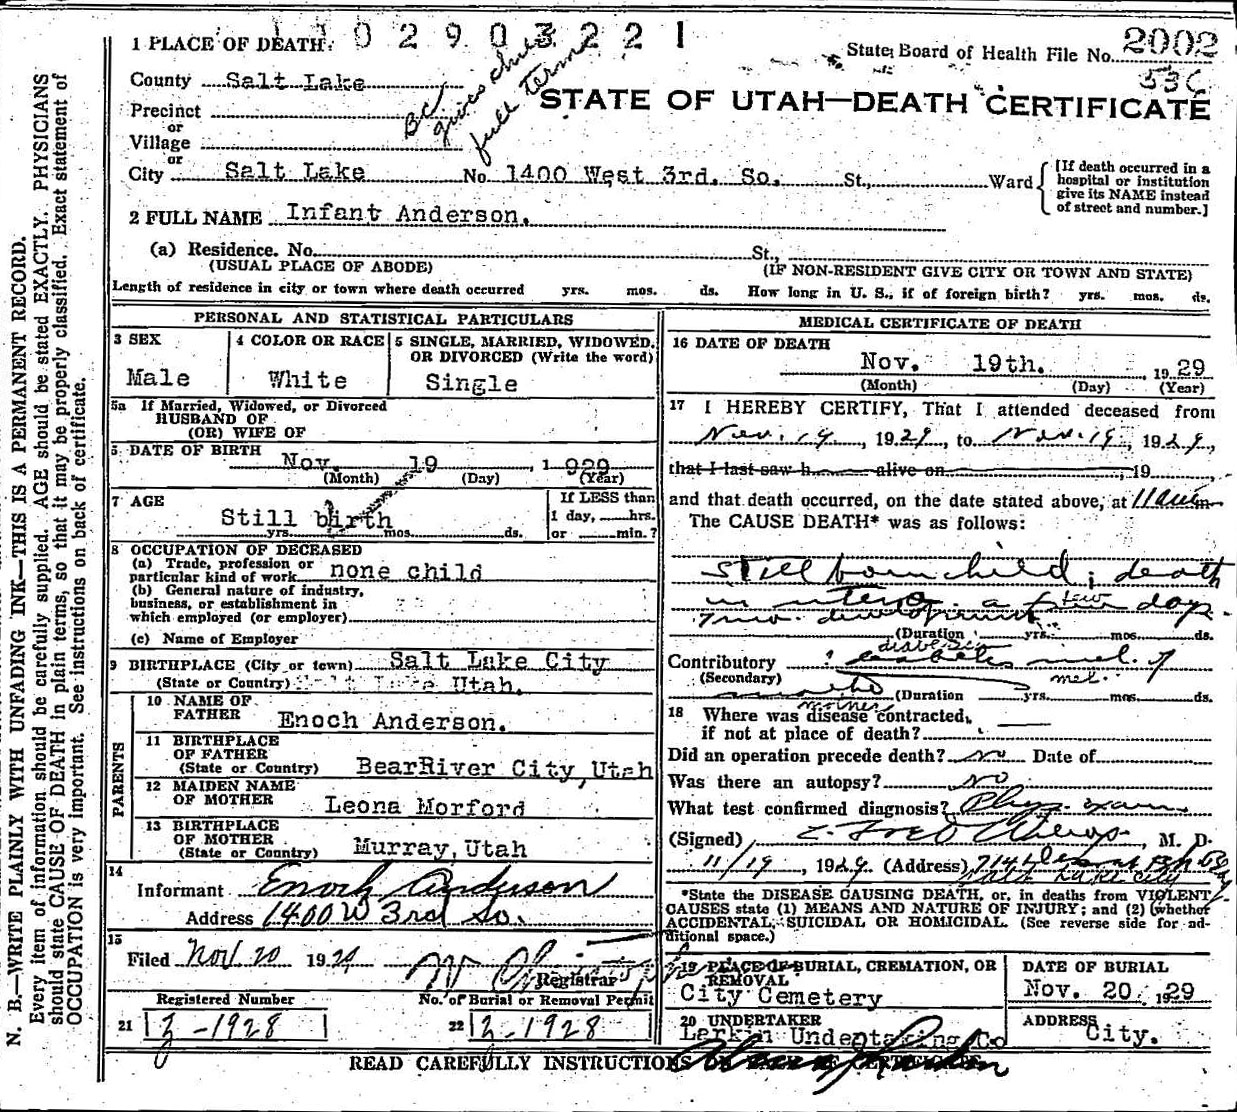 1 PLACE OF DEATH
1 1 0 2 9 0 3 2 2 1
State Board of Health File No. 2002
536
County Salt Lake
BC gives child full term
STATE OF UTAH—DEATH CERTIFICATE
Precinct
or
Village
or
City Salt Lake No 1400 West 3rd. So. St., Ward
[If death occurred in a hospital or institution give its NAME instead of street and number.]
2 FULL NAME Infant Anderson.
(a) Residence. No. St.,
(USUAL PLACE OF ABODE) (IF NON-RESIDENT GIVE CITY OR TOWN AND STATE)
Length of residence in city or town where death occurred yrs. mos. ds. How long in U. S., if of foreign birth? yrs. mos. ds.
PERSONAL AND STATISTICAL PARTICULARS
3 SEX
Male
4 COLOR OR RACE
White
5 SINGLE, MARRIED, WIDOWED, OR DIVORCED (Write the word)
Single
5a If Married, Widowed, or Divorced
HUSBAND OF
(OR) WIFE OF
6 DATE OF BIRTH
Nov. 19 1929
(Month) (Day) (Year)
7 AGE
Still birth
yrs. mos. ds.
If LESS than
1 day, hrs.
or min.?
8 OCCUPATION OF DECEASED
(a) Trade, profession or
particular kind of work none child
(b) General nature of industry,
business, or establishment in
which employed (or employer)
(c) Name of Employer
9 BIRTHPLACE (City or town) Salt Lake City
(State or Country) Salt Lake Utah.
PARENTS
10 NAME OF
FATHER Enoch Anderson.
11 BIRTHPLACE
OF FATHER
(State or Country) BearRiver City, Utah
12 MAIDEN NAME
OF MOTHER Leona Morford
13 BIRTHPLACE
OF MOTHER
(State or Country) Murray, Utah
14
Informant Enoch Anderson
Address 1400 W 3rd So.
15
Filed Nov 20 1929
Registrar
Registered Number
21 2-1928
No. of Burial or Removal Permit
22 2-1928
MEDICAL CERTIFICATE OF DEATH
16 DATE OF DEATH
Nov. 19th. 1929
(Month) (Day) (Year)
17 I HEREBY CERTIFY, That I attended deceased from
Nov. 19, 1929, to Nov. 19, 1929,
that I last saw h alive on , 19
and that death occurred, on the date stated above, at 11 am
The CAUSE DEATH* was as follows:
Still born child; death
in utero a few days
7 mo. development
(Duration yrs. mos. ds.
diabetes
Contributory ? diabetes mel. of
(Secondary) mel.
mother (Duration yrs. mos. ds.
mother
18 Where was disease contracted,
if not at place of death?
Did an operation precede death? no Date of
Was there an autopsy? No
What test confirmed diagnosis? Phys. exam
(Signed) M. D.
11/19, 1929 (Address) 714
Salt Lake City
*State the DISEASE CAUSING DEATH, or, in deaths from VIOLENT
CAUSES state (1) MEANS AND NATURE OF INJURY; and (2) (whether
ACCIDENTAL, SUICIDAL OR HOMICIDAL. (See reverse side for ad-
ditional space.)
19 PLACE OF BURIAL, CREMATION, OR
REMOVAL
City Cemetery
DATE OF BURIAL
Nov. 20 1929
20 UNDERTAKER
Larkin Undertaking Co
ADDRESS
City.
READ CAREFULLY INSTRUCTIONS ON BACK OF CERTIFICATE
N. B.—WRITE PLAINLY WITH UNFADING INK—THIS IS A PERMANENT RECORD.
Every item of information should be carefully supplied. AGE should be stated EXACTLY. PHYSICIANS
should state CAUSE OF DEATH in plain terms, so that it may be properly classified. Exact statement of
OCCUPATION is very important. See instructions on back of certificate.